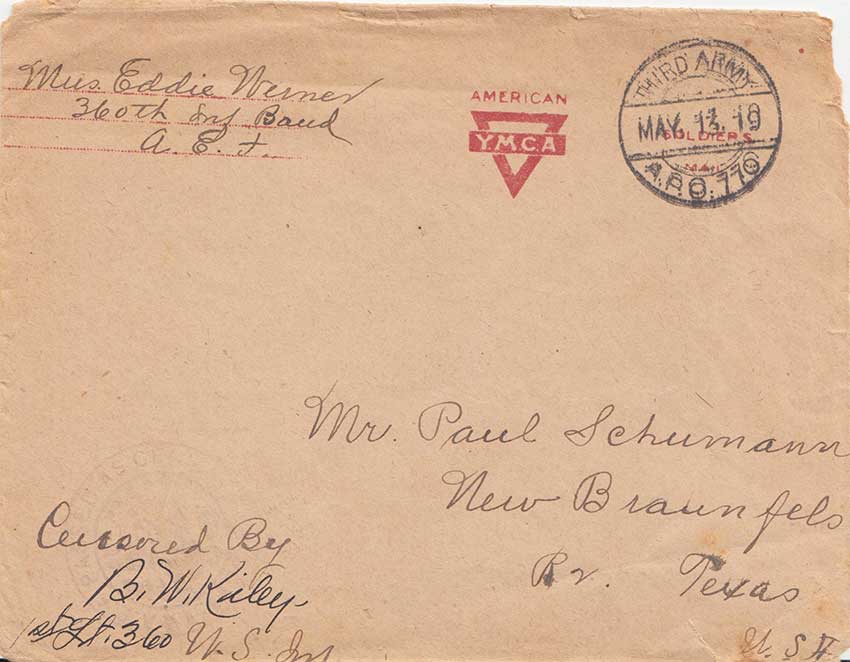 Mus. Eddie Werner
360th Inf Band
A. E. F.
AMERICAN
Y.M.C.A
THIRD ARMY
MAY. 13. 19
SOLDIER'S
MAIL
A.P.O. 770
Mr. Paul Schumann
New Braunfels
Texas
U. S. A
Censored By
1st Lt. 360 U. S. Inf